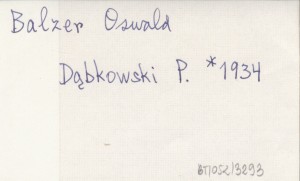 Balzer Oswald
Dąbkowski P. *1934
BT/OSZ/3293